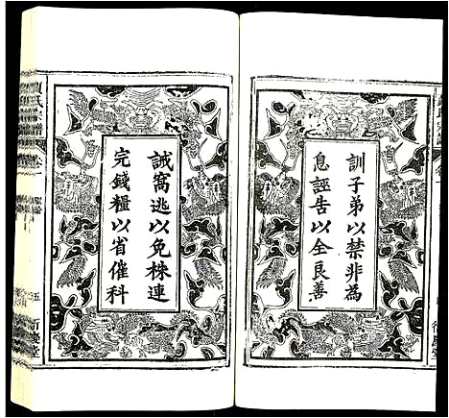 訓子弟以禁非為
息誣告以全良善
誡窩逃以免株連
完錢糧以省催科